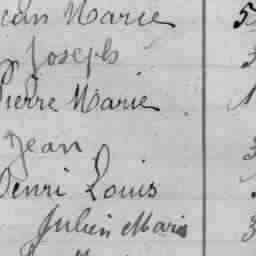 Jean Marie 5
Joseph 3
Pierre Marie 1
Jean 3
Henri Louis
Julien Marie 3